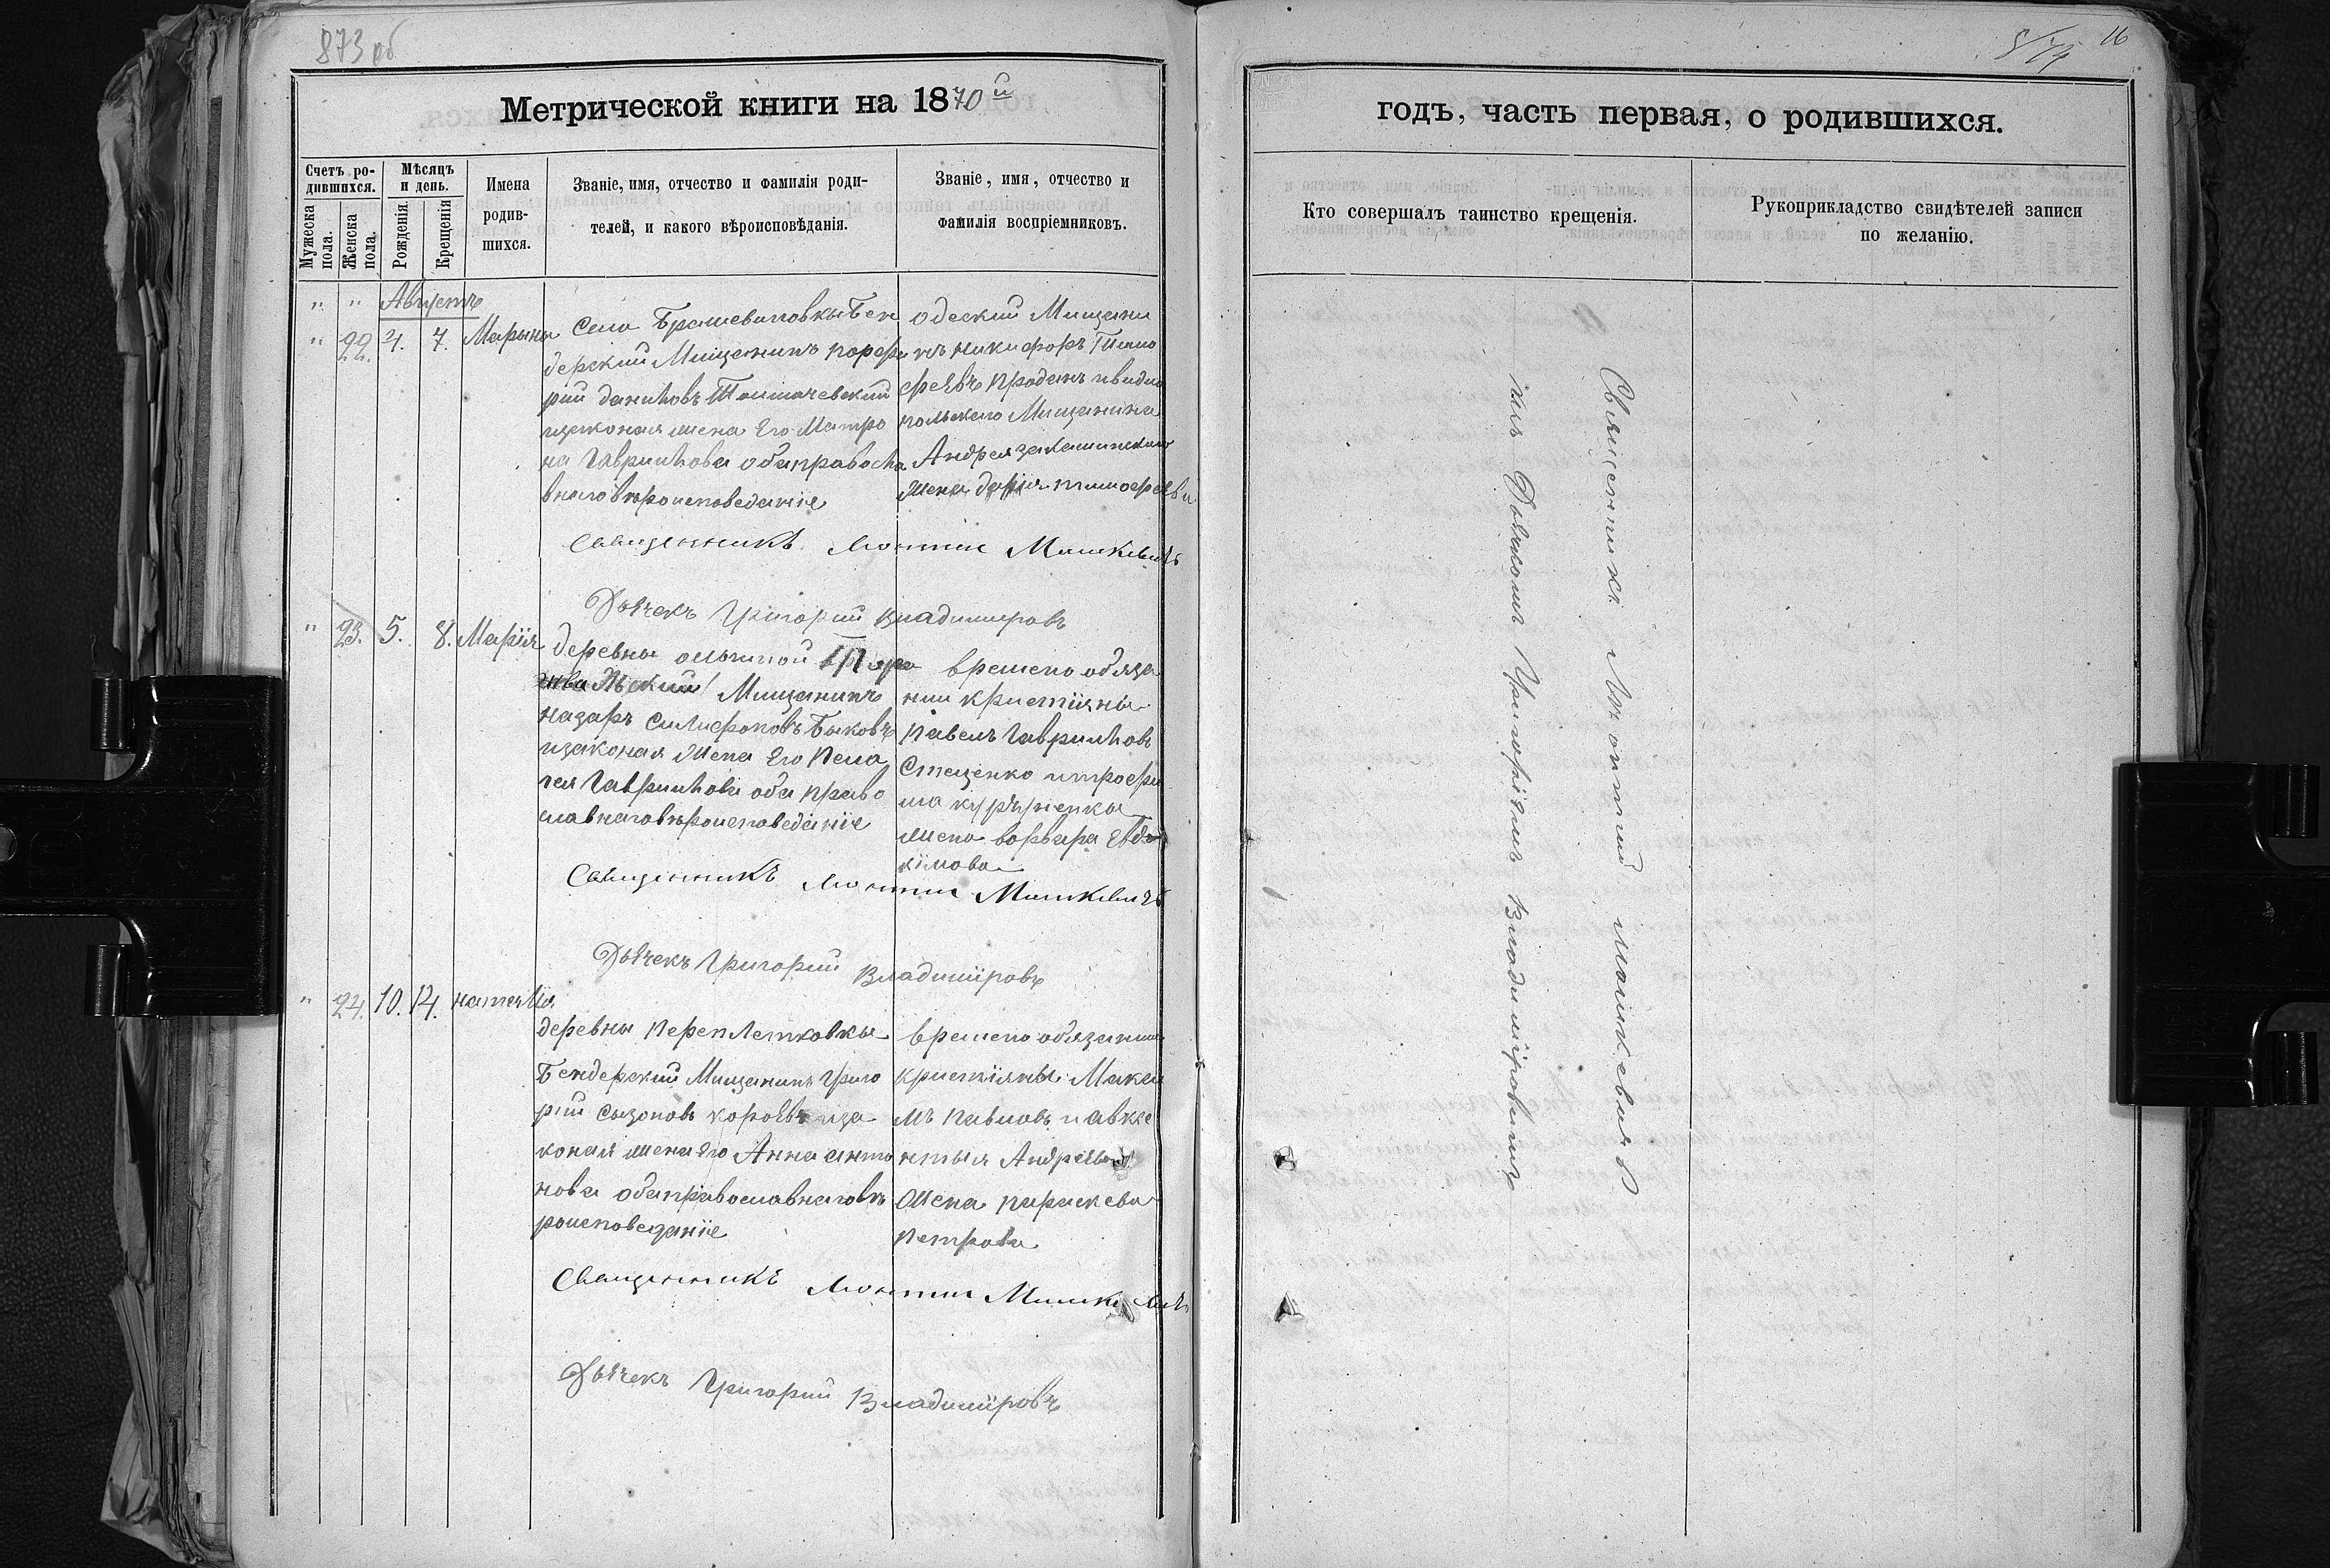 873 об
Метрической книги на 1870й
Счетъ ро-
дившихся.
Мужеска пола.
Женска пола.
Мѣсяцъ
и день.
Рожденія.
Крещенія
Имена
родив-
шихся.
Званіе, имя, отчество и фамилія роди-
телей, и какого вѣроисповѣданія.
Званіе, имя, отчество и
фамилія воспріемниковъ.
" " Августъ
" 22. 4. 7. Марына
Села Бен
дерский Мищанинъ порфи
рий данилов
изаконая жена Его Матро
на Гаврилова оба православ
внаго вѣроисповеданіе
одеский Мищани
нъ никифоръ Тимо
феевъ продан и видио
польскаго Мищанина
Андрея
жена дарія тимофеева
Священникъ Леонтий Мошкевичъ
Дьячекъ Григорий Владимировъ
" 23. 5. 8. Марія
деревны
Мищанинъ
назаръ Быковъ
изаконая жена Его Пела
гея Гаврилова оба право
славнаго вѣроисповеданіе
времено обяза
нии кристіяны
Павелъ Гаврилов
Стеценко и трофи
ма
жена ворвара Евдо
кімова
Священникъ Леонтий Мошкевичъ
Дьячекъ Григорий Владиміровъ
" 24. 10. 14. наталія
деревны Переплетковкы
Бендерский Мищанинъ Григо
рий Сызонов иза
коная жена Его Анна анто
нова оба православнаго вѣ
роисповеданіе
времено обязании
кристіяны Макси
мъ Павлов и
Андреева
жена параскева
Петрова
Священникъ Леонтий Мошкевичъ
Дьячекъ Григорий Владиміровъ
874 16
годъ, часть первая, о родившихся.
Кто совершалъ таинство крещенія.
Рукоприкладство свидѣтелей записи
по желанію.
Священникъ Леонтий Мошкевичъ
Григоріемъ Владиміровичъ